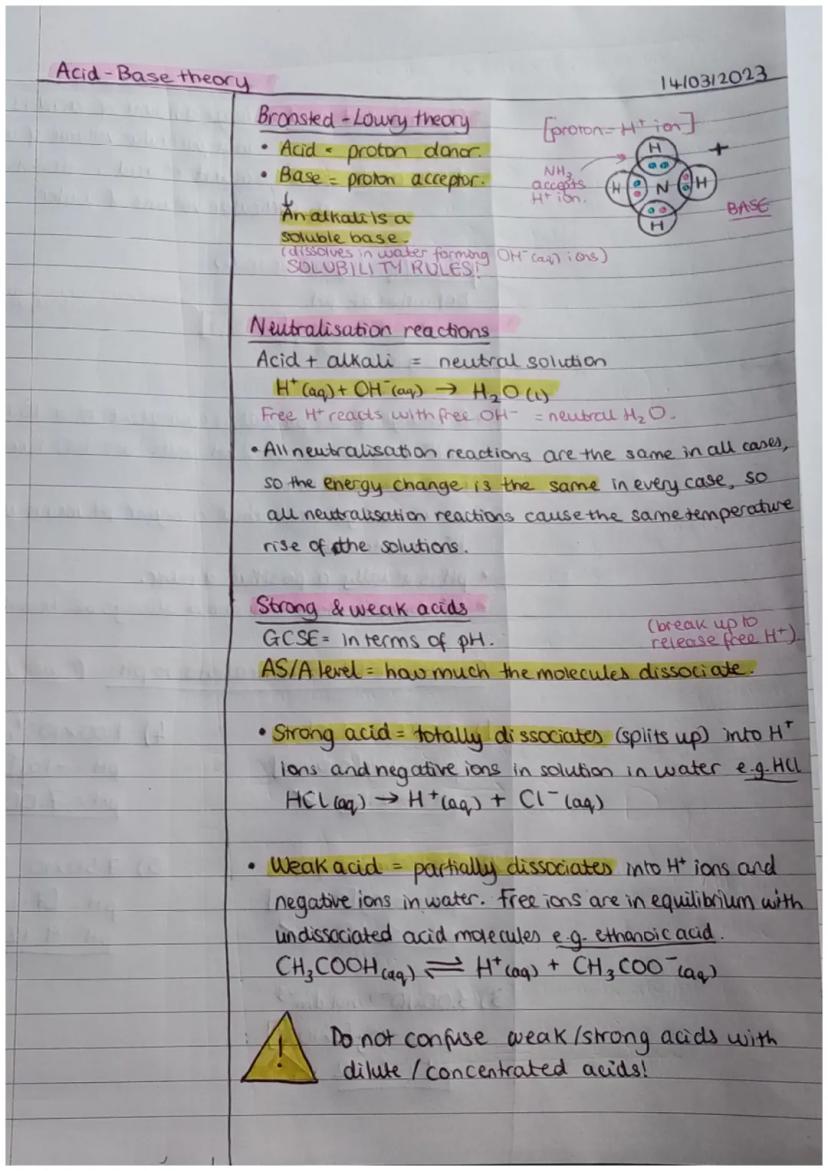 Acid-Base theory
14/03/2023
Bronsted-Lowry theory
• Acid = proton donor.
• Base = proton acceptor.
↓
An alkali is a
soluble base.
(dissolves in water forming OH⁻(aq) ions)
SOLUBILITY RULES!
[proton = H⁺ ion]
NH₃
accepts
H⁺ ion.
H
+
H N H
H
BASE
Neutralisation reactions
Acid + alkali = neutral solution
H⁺(aq) + OH⁻(aq) → H₂O(l)
Free H⁺ reacts with free OH⁻ = neutral H₂O.
• All neutralisation reactions are the same in all cases,
so the energy change is the same in every case, so
all neutralisation reactions cause the same temperature
rise of the solutions.
Strong & weak acids
GCSE = in terms of pH.
(break up to
release free H⁺)
AS/A level = how much the molecules dissociate.
• Strong acid = totally dissociates (splits up) into H⁺
ions and negative ions in solution in water e.g. HCl
HCl(aq) → H⁺(aq) + Cl⁻(aq)
• Weak acid = partially dissociates into H⁺ ions and
negative ions in water. Free ions are in equilibrium with
undissociated acid molecules e.g. ethanoic acid.
CH₃COOH(aq) ⇌ H⁺(aq) + CH₃COO⁻(aq)
!
Do not confuse weak/strong acids with
dilute/concentrated acids!